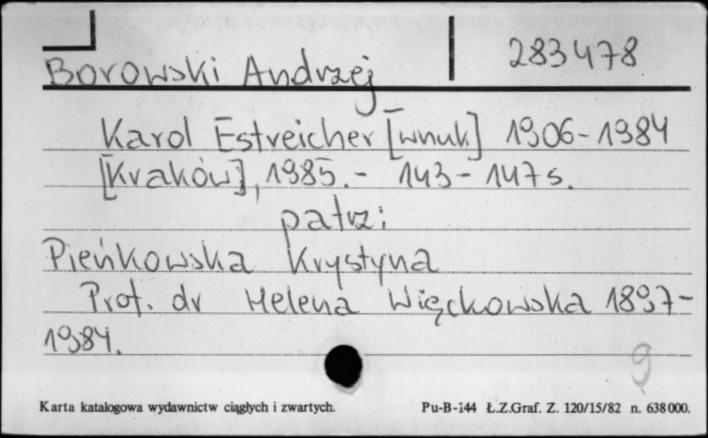 283478
Borowski Andrzej
Karol Estreicher [wnuk] 1906-1984
[Kraków], 1985.- 143-147 s.
patrz:
Pieńkowska Krystyna
Prof. dr Helena Więckowska 1897-
1984.
9
Karta katalogowa wydawnictw ciągłych i zwartych. Pu-B-144 Ł.Z.Graf. Z. 120/15/82 n. 638000.